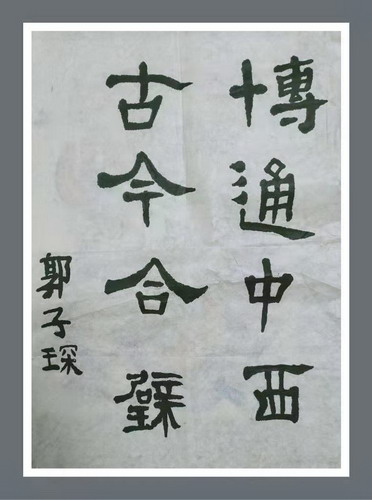 博通中西
古今合璧
郭子琛